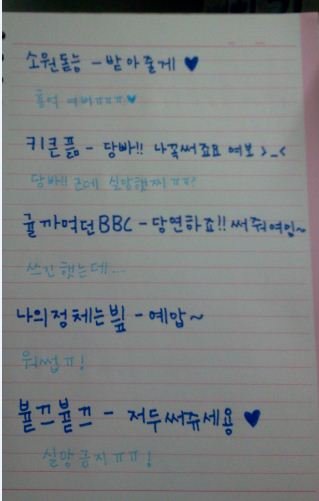 소원돋는 - 받아줄게 ♥
흡억 여버ㅠㅠㅠ♥
키큰품 - 당빠!! 나꼭써죠요 여보 >_<
당빠!! 근데 실망했찌ㅠㅠ?
귤까먹던BBC - 당연하죠!! 써줘여잉~
쓰긴했는데...
나의정체는빛 - 예압~
워썹ㅠ!
뿓끄뿓끄 - 저두써쥬세용 ♥
실망금지ㅠㅠ!